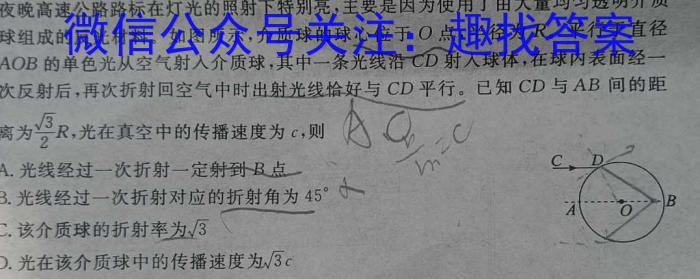 夜晚高速公路路标在灯光的照射下特别亮,主要是因为使用了由大量均匀透明介质
球组成的 如图所示,介质球的球心位于O点 R 平行 直径
微信公众号关注：趣找答案
AOB的单色光从空气射入介质球,其中一条光线沿CD射入球体,在球内表面经一
次反射后,再次折射回空气中时出射光线恰好与CD平行。已知CD与AB间的距
离为√3/2 R,光在真空中的传播速度为c,则
A. 光线经过一次折射一定射到B点
B. 光线经过一次折射对应的折射角为45°
C. 该介质球的折射率为√3
D. 光在该介质球中的传播速度为√3c
C D
A O B